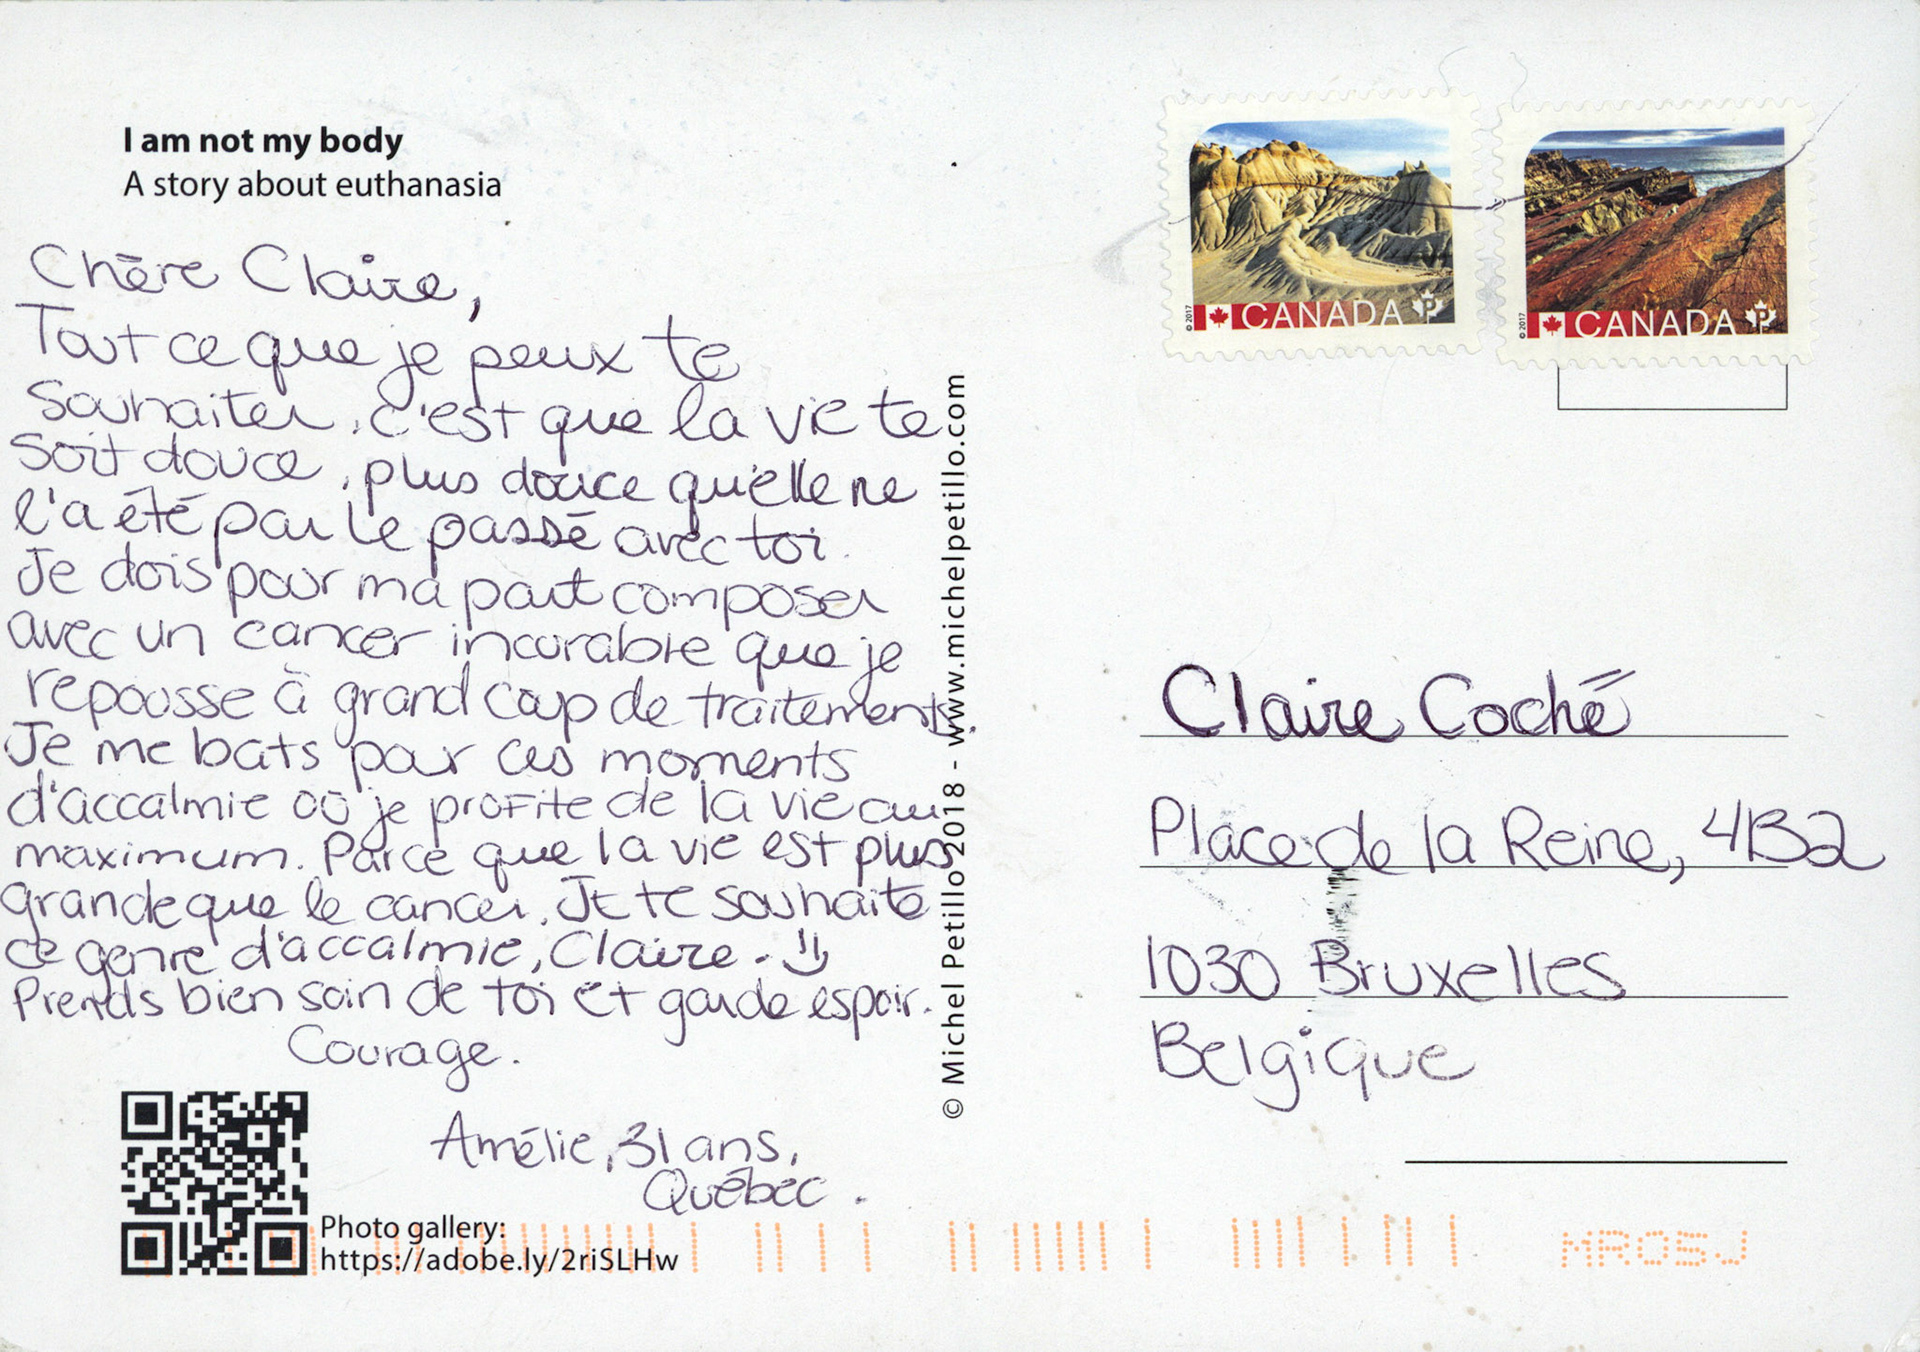 I am not my body
A story about euthanasia
Chère Claire,
Tout ce que je peux te
souhaiter, c'est que la vie te
soit douce, plus douce qu'elle ne
l'a été par le passé avec toi.
Je dois pour ma part composer
avec un cancer incurable que je
repousse à grand coup de traitements.
Je me bats pour ces moments
d'accalmie où je profite de la vie au
maximum. Parce que la vie est plus
grande que le cancer. Je te souhaite
ce genre d'accalmie, Claire.
Prends bien soin de toi et garde espoir.
Courage.
Amélie, 31 ans,
Québec.
Photo gallery:
https://adobe.ly/2riSLHw
© Michel Petillo 2018 - www.michelpetillo.com
© 2017 CANADA P
© 2017 CANADA P
Claire Coché
Place de la Reine, 4B2
1030 Bruxelles
Belgique
MR05J